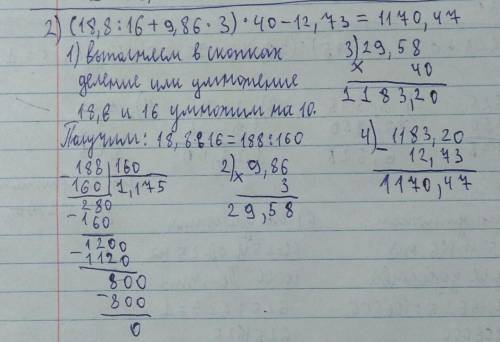 2) (18,8:16+9,86·3)·40-12,73=1170,47
1) выполняем в скобках
деление или умножение
18,8 и 16 умножим на 10.
Получим: 18,8:16=188:160
-188 160
160 1,175
280
-160
1200
-1120
800
-800
0
2) 9,86
x 3
29,58
3) 29,58
x 40
1183,20
4) 1183,20
- 12,73
1170,47